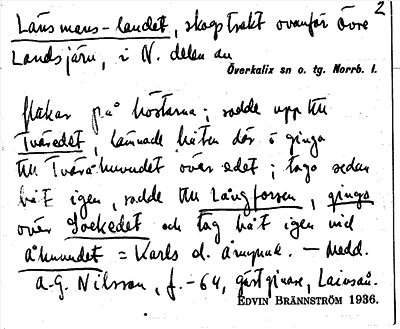 2
Länsmans-landet, skogstrakt ovanför Övre
Landsjärv, i N. delen av
Överkalix sn o. tg. Norrb. l.
flakar på höstarna; rodde upp till
Tväredet, lämnade båten där o gingo
till Tvåråhuvudet över edet; togo sedan
båt igen, rodde till Långforsen, gingo
över Sockedet och tog båt igen vid
åhuvudet = Karls d. åmynn. – Medd.
A.G. Nilsson, f. -64, gästgivare, Lansån.
EDVIN BRÄNNSTRÖM 1936.